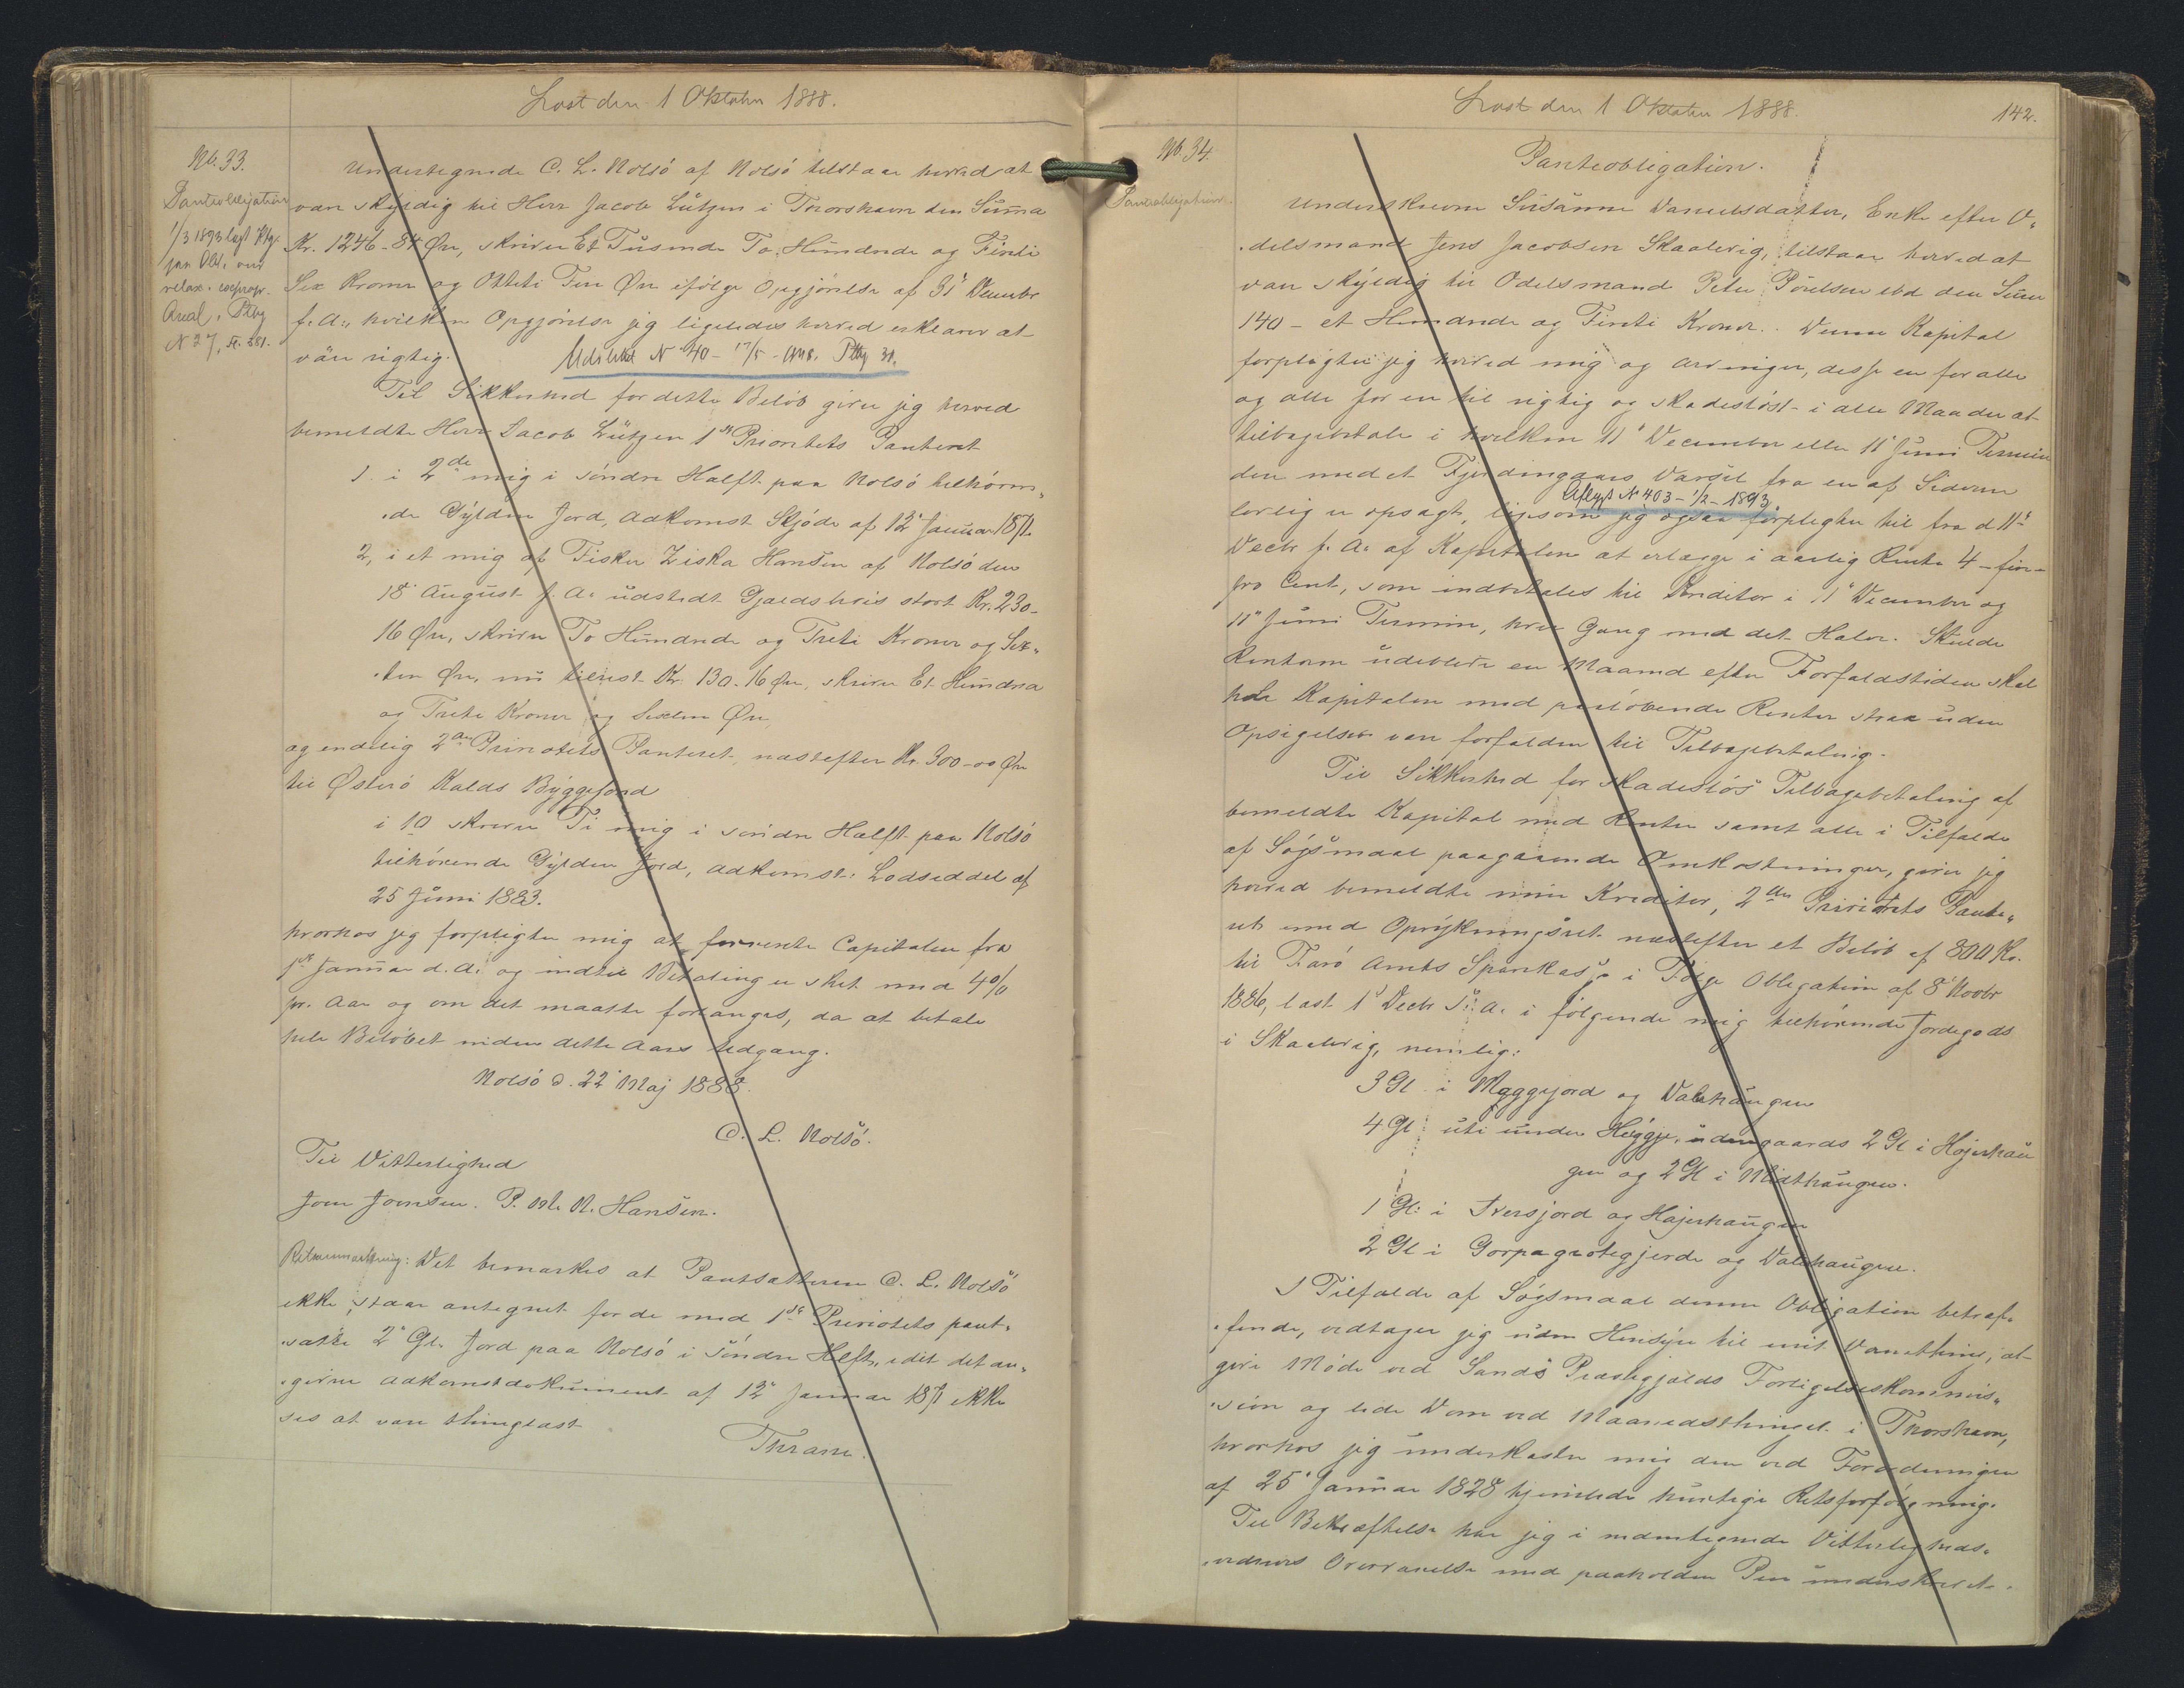 Læst den 1 Oktober 1888.
No. 33.
Panteobligation
1/3 1893 læst
N 27, f. 281.
Undertegnede C. L. Nolsö af Nolsö tilstaar herved at
være skyldig til Herr Jacob Lützen i Thorshavn den Summa
Kr. 1246-84 Øre, skriver Et Tusinde To Hundrede og Firti
Sex Kroner og Otteti Fire Øre ifölge Opgjörelse af 31' Decembr
f. A:, hvilken Opgjörelse jeg ligeledes herved erklærer at
være rigtig.
Udslettet N 40 - 17/5 - 1918. Ptbg 31.
Til Sikkerhed for dette Belöb giver jeg herved
bemeldte Herr Jacob Lützen 1ste Prioritets Panteret
1. i 2de mig i söndre Halft paa Nolsö tilhören„
„de Gylden Jord, Adkomst Skjöde af 12' Januar 1871.
2, i et mig af Fisker Ziska Hansen af Nolsö den
18' August f. A: udstedt Gjældsbevis stort Kr. 230-
16 Øre, skriver To Hundrede og Treti Kroner og Sex„
„ten Øre, nu tilrest Kr. 130.16 Øre, skriver Et Hundrede
og Treti Kroner og Sexten Øre,
og endelig 2den Prioritets Panteret, næstefter Kr. 300-00 Øre
til Österö Kalds Byggefond
i 10 skriver Ti mig i söndre Halft paa Nolsö
tilhörende Gylden Jord, Adkomst: Lodseddel af
25 Juni 1883.
hvorhos jeg forpligter mig at forrente Capitalen fra
1ste Januar d. A: og indtil Betaling er sket med 4%
pr. Aar og om det maatte forlanges, da at betale
hele Belöbet inden dette Aars Udgang.
Nolsö d. 22' Maj 1888.
C. L. Nolsö.
Til Vitterlighed
Joen Joensen. P. M. N. Hansen.
Retsanmærkning: Det bemærkes at Pantsætteren C. L. Nolsö
ikke staar antegnet for de med 1ste Prioritets pant„
„satte 2 Gl. Jord paa Nolsö i söndre Halft, idet det an„
„givne Adkomstdokument af 12' Januar 1871 ikke
ses at være thinglæst
Thrane.
Læst den 1 Oktober 1888.
142.
No. 34.
Panteobligation.
Panteobligation.
Underskrevne Susanne Danielsdatter, Enke efter O„
„delsmand Jens Jacobsen Skaalevig, tilstaar herved at
være skyldig til Odelsmand Peter Poulsen ibd den Sum
140 - et Hundrede og Firti Kroner. Denne Kapital
forpligter jeg herved mig og Arvinger, disse en for alle
og alle for en til rigtig og skadeslöst i alle Maader at
tilbagebetale i hvilken 11' December eller 11' Juni Termin
den med et Fjerdingaars Varsel fra en af Siderne
Aflyst N 403 - 1/2 - 1893.
lovlig er opsagt, ligesom jeg ogsaa forpligter til fra d 11te
Decbr f. A: af Kapitalen at erlægge i aarlig Rente 4 - fire -
pro Cent, som indbetales til Kreditor i 11' December og
11' Juni Termin, hver Gang med det Halve. Skulde
Renterne udeblive en Maaned efter Forfaldstiden skal
hele Kapitalen med paalöbende Renter strax uden
Opsigelse være forfalden til Tilbagebetaling.
Til Sikkerhed for skadeslös Tilbagebetaling af
bemeldte Kapital med Renter samt alle i Tilfælde
af Sögsmaal paagaaende Omkostninger, giver jeg
herved bemeldte min Kreditor, 2den Prioritets Pante„
ret med Oprykningsret næstefter et Belöb af 800 Kr.
til Færö Amts Sparekasse i Fölge Obligation af 8' Novbr
1886, læst 1' Decbr s. A. i fölgende mig tilhörende Jordegods
i Skaalevig, nemlig:
3 Gl. i Myggejord og Valehaugen
4 Gl. uti under Höggje, udengaards 2 Gl i Höjerhau
gen og 2 Gl i Midthaugen.
1 Gl. i Iversjord og Höjerhaugen
2 Gl i Gorpagrotegjerde og Valehaugen.
I Tilfælde af Sögsmaal denne Obligation betræf„
„fende, vedtager jeg uden Hensyn til mit Værnething, at
give Möde ved Sandö Præstegjælds Forligelseskommis„
„sion og lide Dom ved Maanedsthinget i Thorshavn,
hvorhos jeg underkaster mig den ved Forordningen
af 25' Januar 1828 hjemlede hurtige Retsforfölgning.
Til Bekræftelse har jeg i nedentegnede Vitterligheds„
„vidners Overværelse med paaholden Pen underskrevet.